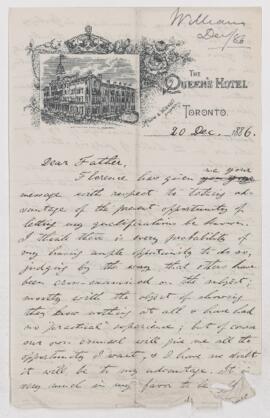 William
Dec/86
THE
QUEEN'S HOTEL
TORONTO.
20 Dec. 1886.
Dear Father,
Florence has given me your
message with respect to taking ad-
vantage of the present opportunity of
letting my qualifications be known.
I think there is every probability of
my having ample opportunity to do so,
judging by the way that others have
been cross-examined on the subject;
mostly with the object of showing
they know nothing at all & have had
no "practical" experience; but of course
our own counsel will give me all the
opportunity I want, & I have no doubt
it will be to my advantage. It is
very much in my favor to be